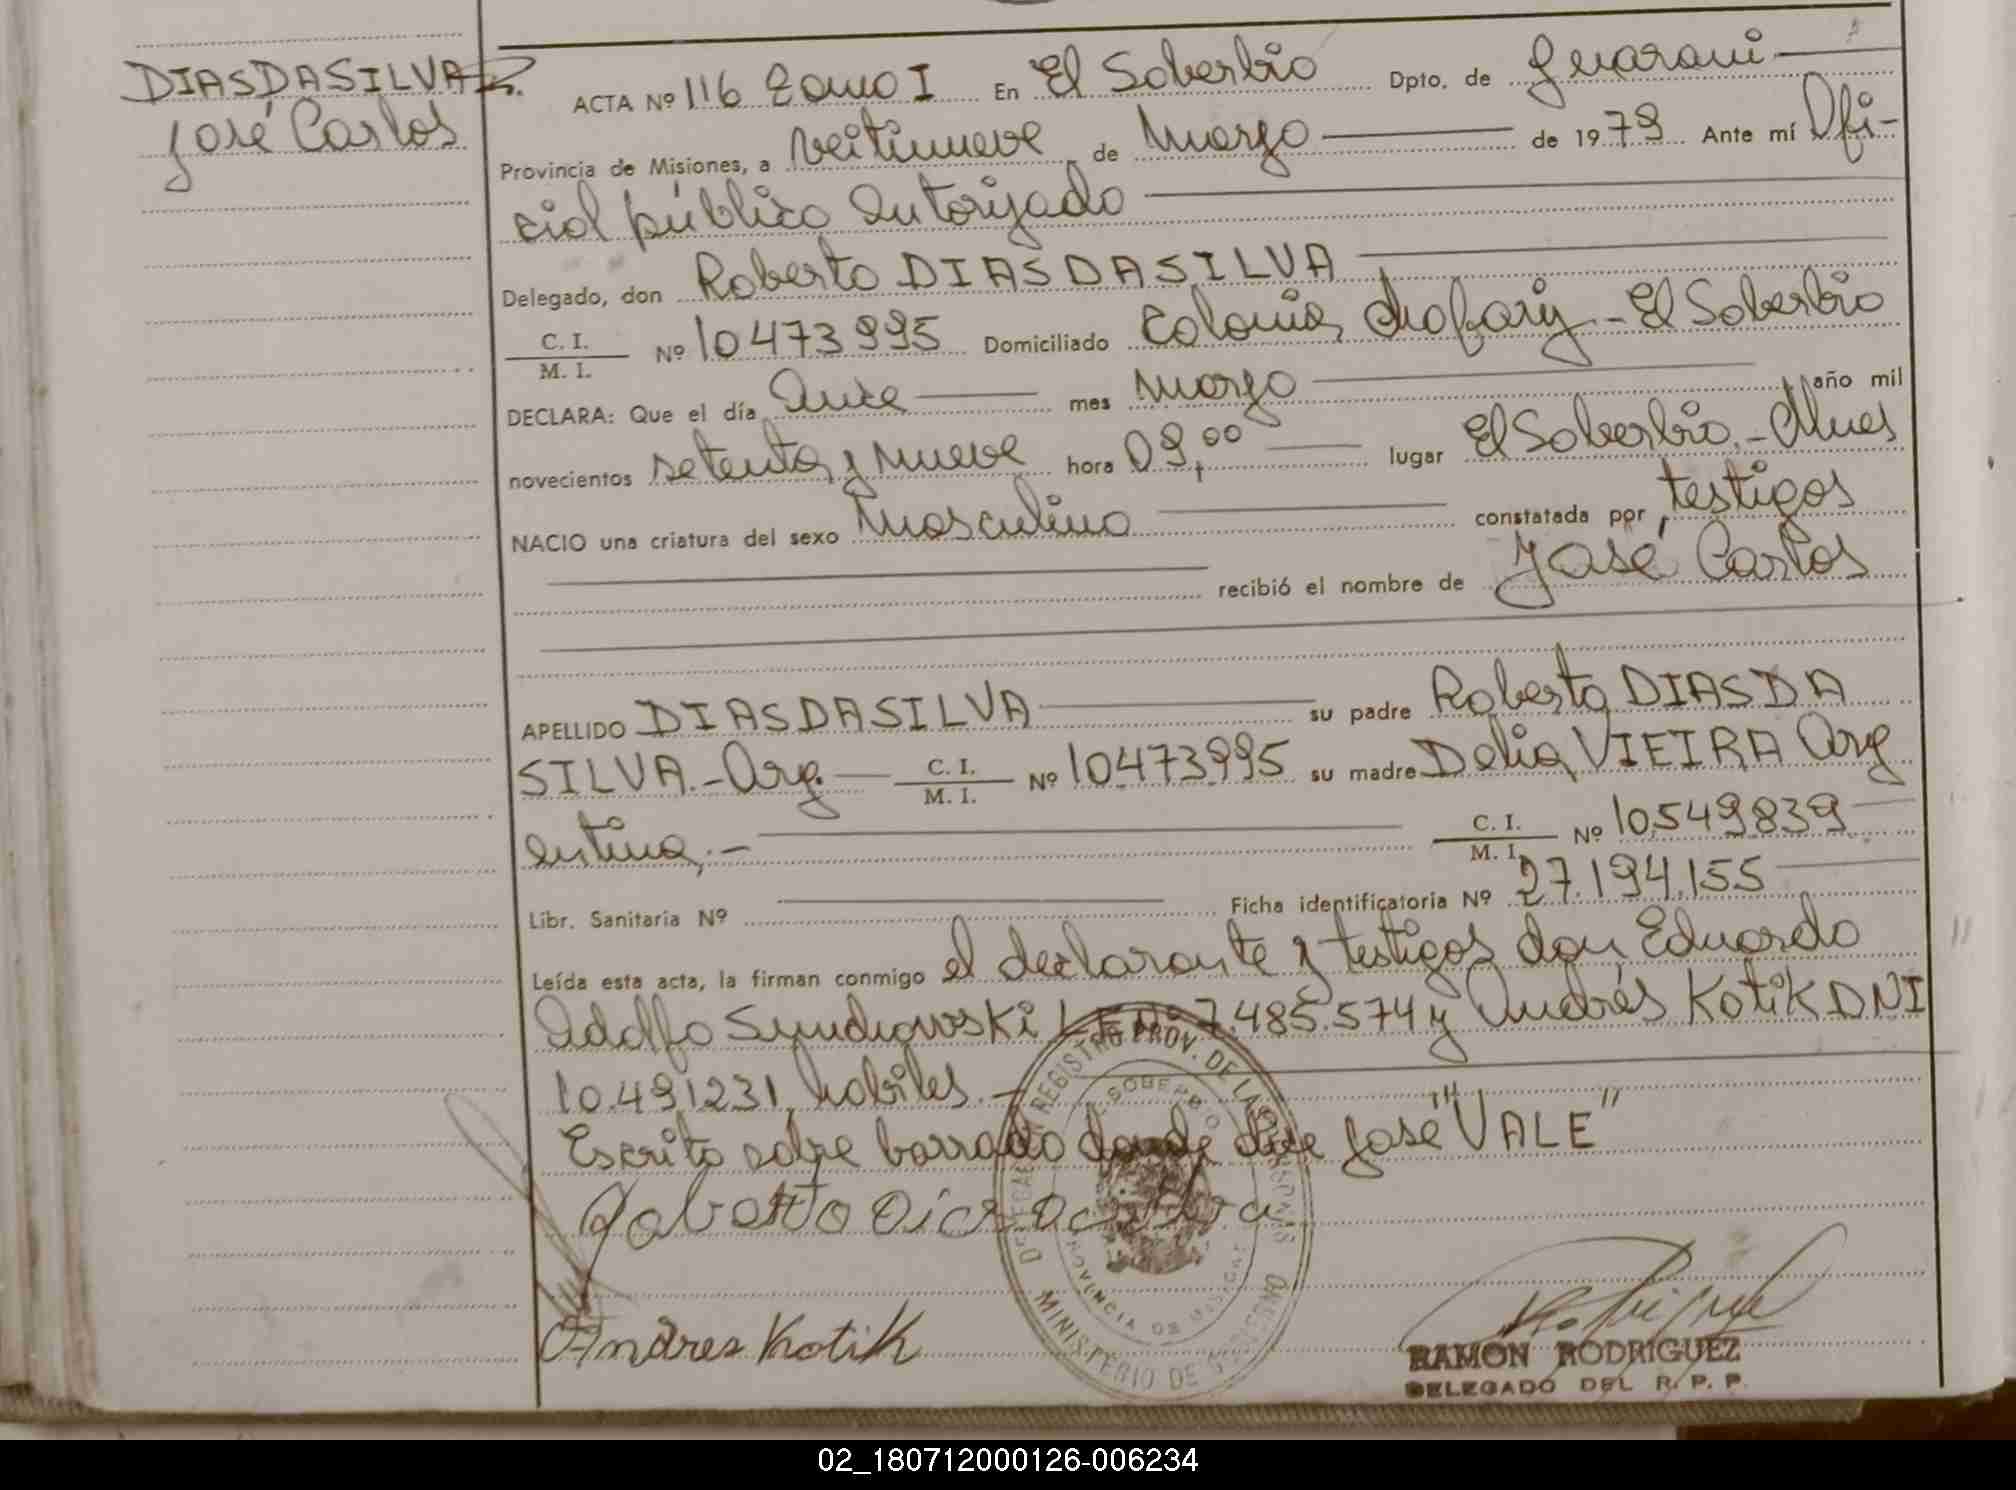 DIAS DA SILVA
José Carlos
ACTA Nº 116 Tomo I En El Soberbio Dpto. de Guarani
Provincia de Misiones, a veitinueve de Marzo de 1979 Ante mí Ofi-
cial público Autorizado
Delegado, don Roberto DIAS DA SILVA
C. I. / M. I. Nº 10473995 Domiciliado Colonia - El Soberbio
DECLARA: Que el día Once mes Marzo año mil
novecientos setenta y nueve hora 09,00 lugar El Soberbio.- Mnes
NACIO una criatura del sexo Masculino constatada por testigos
recibió el nombre de José Carlos
APELLIDO DIAS DA SILVA su padre Roberto DIAS DA
SILVA.- Arg. C. I. / M. I. Nº 10473995 su madre Delia VIEIRA Arg
entina.- C. I. / M. I. Nº 10.549.839
Libr. Sanitaria Nº Ficha identificatoria Nº 27.194.155
Leída esta acta, la firman conmigo el declarante y testigos don Eduardo
Adolfo 7.485.574 y Andrés Kotik DNI
10.491231, habiles.-
Escrito sobre borrado donde dice José "VALE"
Roberto Dias da Silva
Andres Kotik
DELEGACION REGISTRO PROV. DE LAS PERSONAS
EL SOBERBIO
PROVINCIA DE MISIONES
MINISTERIO DE GOBIERNO
RAMON RODRIGUEZ
DELEGADO DEL R. P. P.
02_180712000126-006234